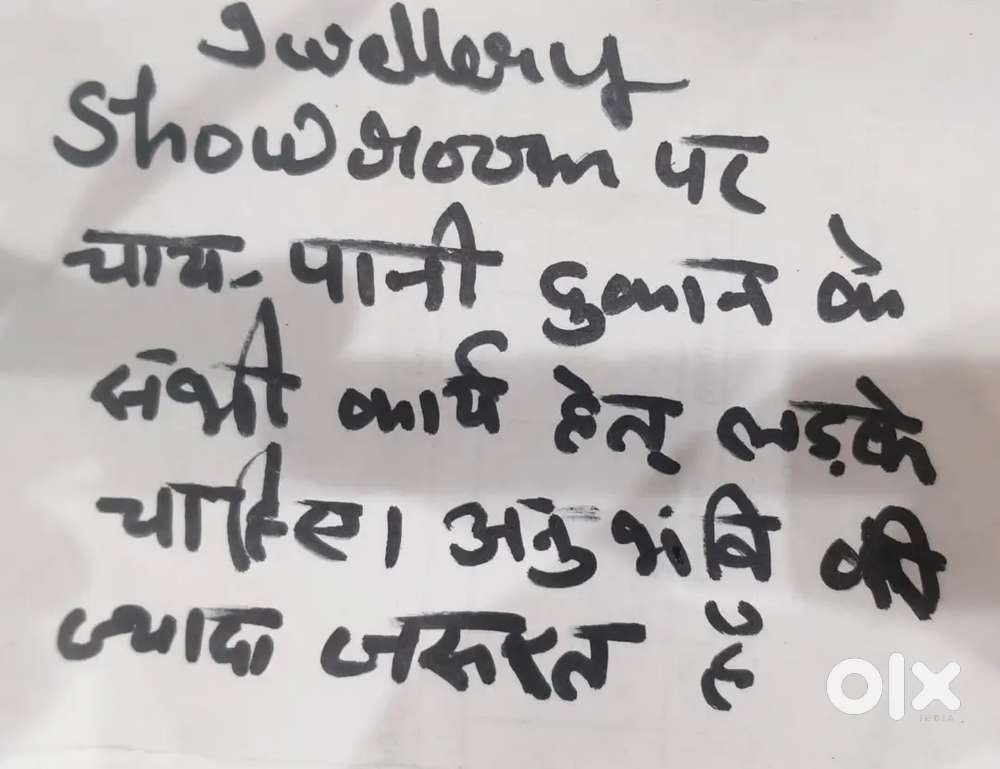 Jwellery
Showroom पर
चाय- पानी दुकान के
संभी कार्य हेतु लड़के
चाहिए। अनुभंवि की
ज्यादा जरूरत है
olx
INDIA